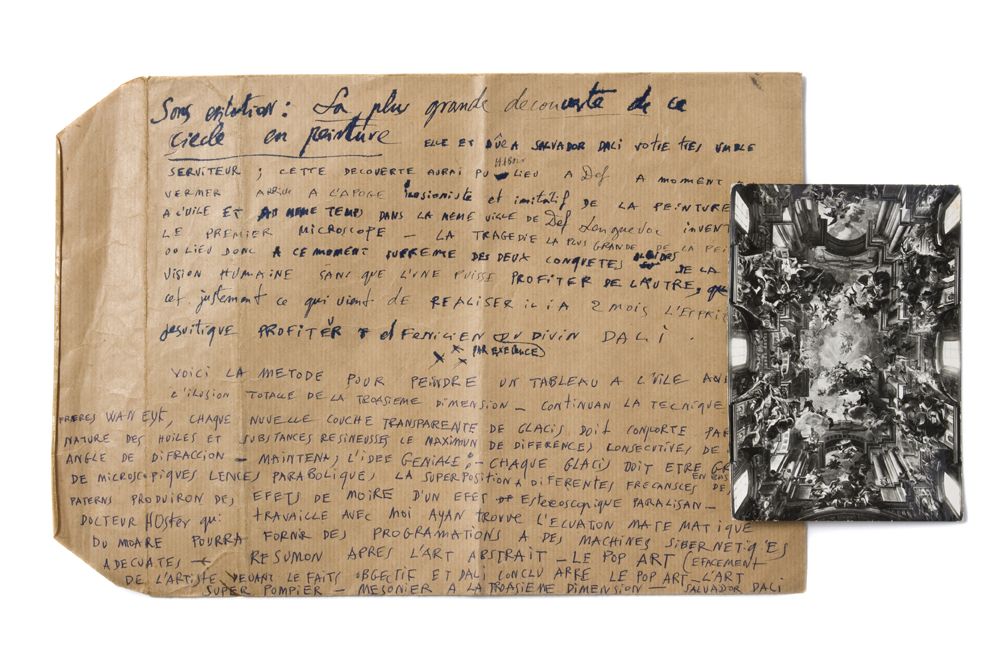 Sans exitation : La plus grande decouverte de ce
ciecle en peinture ELLE ET DÛE A SALVADOR DALI VOTRE TRES UMBLE
SERVITEUR ; CETTE DECOUVERTE AURAI PU LIEU A Def A MOMENT
VERMER ARRIVE A L'APOGE ilusioniste et imitatif DE LA PEINTURE
A L'UILE ET AU MEME TEMPS DANS LA MEME VILLE DE Def INVEN
LE PREMIER MICROSCOPE — LA TRAGEDIE LA PLUS GRANDE DE LA PEI
LIEU DONC A CE MOMENT SUPREME DES DEUX CONQUETES DE LA
VISION HUMAINE SANS QUE L'UNE PUISSE PROFITER DE L'AUTRE, que
cet justement ce qui vient de REALISER IL I A 2 MOIS L'ESPRI
jesuitique PROFITER et FENICIEN DU DIVIN DALI .
PAR EXELENCE
VOICI LA METODE POUR PEINDRE UN TABLEAU A L'UILE
L'ILUSION TOTALE DE LA TROASIEME DIMENSION — CONTINUAN LA TECNIQUE
FRERES WAN EUK, CHAQUE NUVELLE COUCHE TRANSPARENTE DE GLACIS DOIT CONPORTE PAR
NATURE DES HUILES ET SUBSTANCES RESINEUSSES LE MAXIMUN DE DIFERENCES CONSECUTIVES DE
ANGLE DE DIFRACCION — MAINTENAN, L'IDEE GENIALE : — CHAQUE GLACIS DOIT ETRE
DE MICROSCOPIQUES LENCES PARABOLIQUE, LA SUPERPOSITION A DIFERENTES FRECANSES DE
PATERNS PRODUIRON DES EFETS DE MOIRE D'UN EFET Estereoscopique PARALISAN —
DOCTEUR HOster qui TRAVAILLE AVEC MOI AYAN TROUVE L'ECUATON MATEMATIQUE
DU MOARE POURRA FORNIR DES PROGRAMATIONS A DES MACHINES SIBERNETIQES
ADECUATES — RESUMON APRES L'ART ABSTRAIT — LE POP ART (EFACEMENT
DE L'ARTISTE DEVANT LE FAIT) OBGECTIF ET DALI CONCLU ARRE LE POP ART — L'ART
SUPER POMPIER — MESONIER A LA TROASIEME DIMENSION — SALVADOR DALI